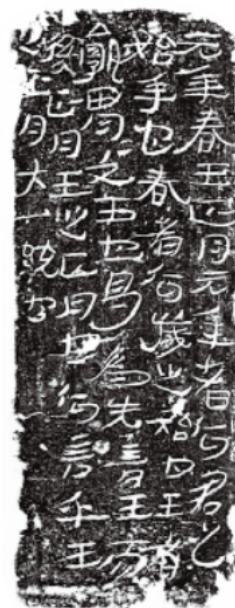 元年春王正月元年者何君之
始年也春者何歲之始也王者
孰胃胃文王也曷為先言王而
後言正月王正月也何言乎王
正月大一統也